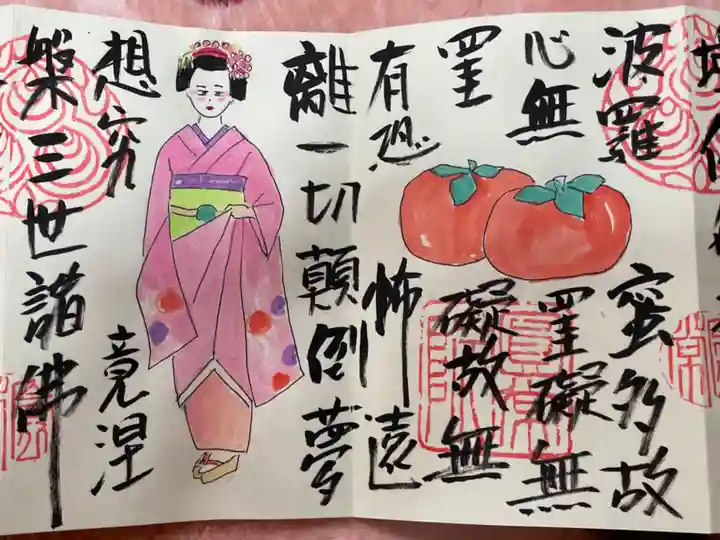 埵依
波羅蜜多故
心無罣礙無
罣礙故無
有恐怖遠
離一切顛倒夢
想究竟涅
槃三世諸佛